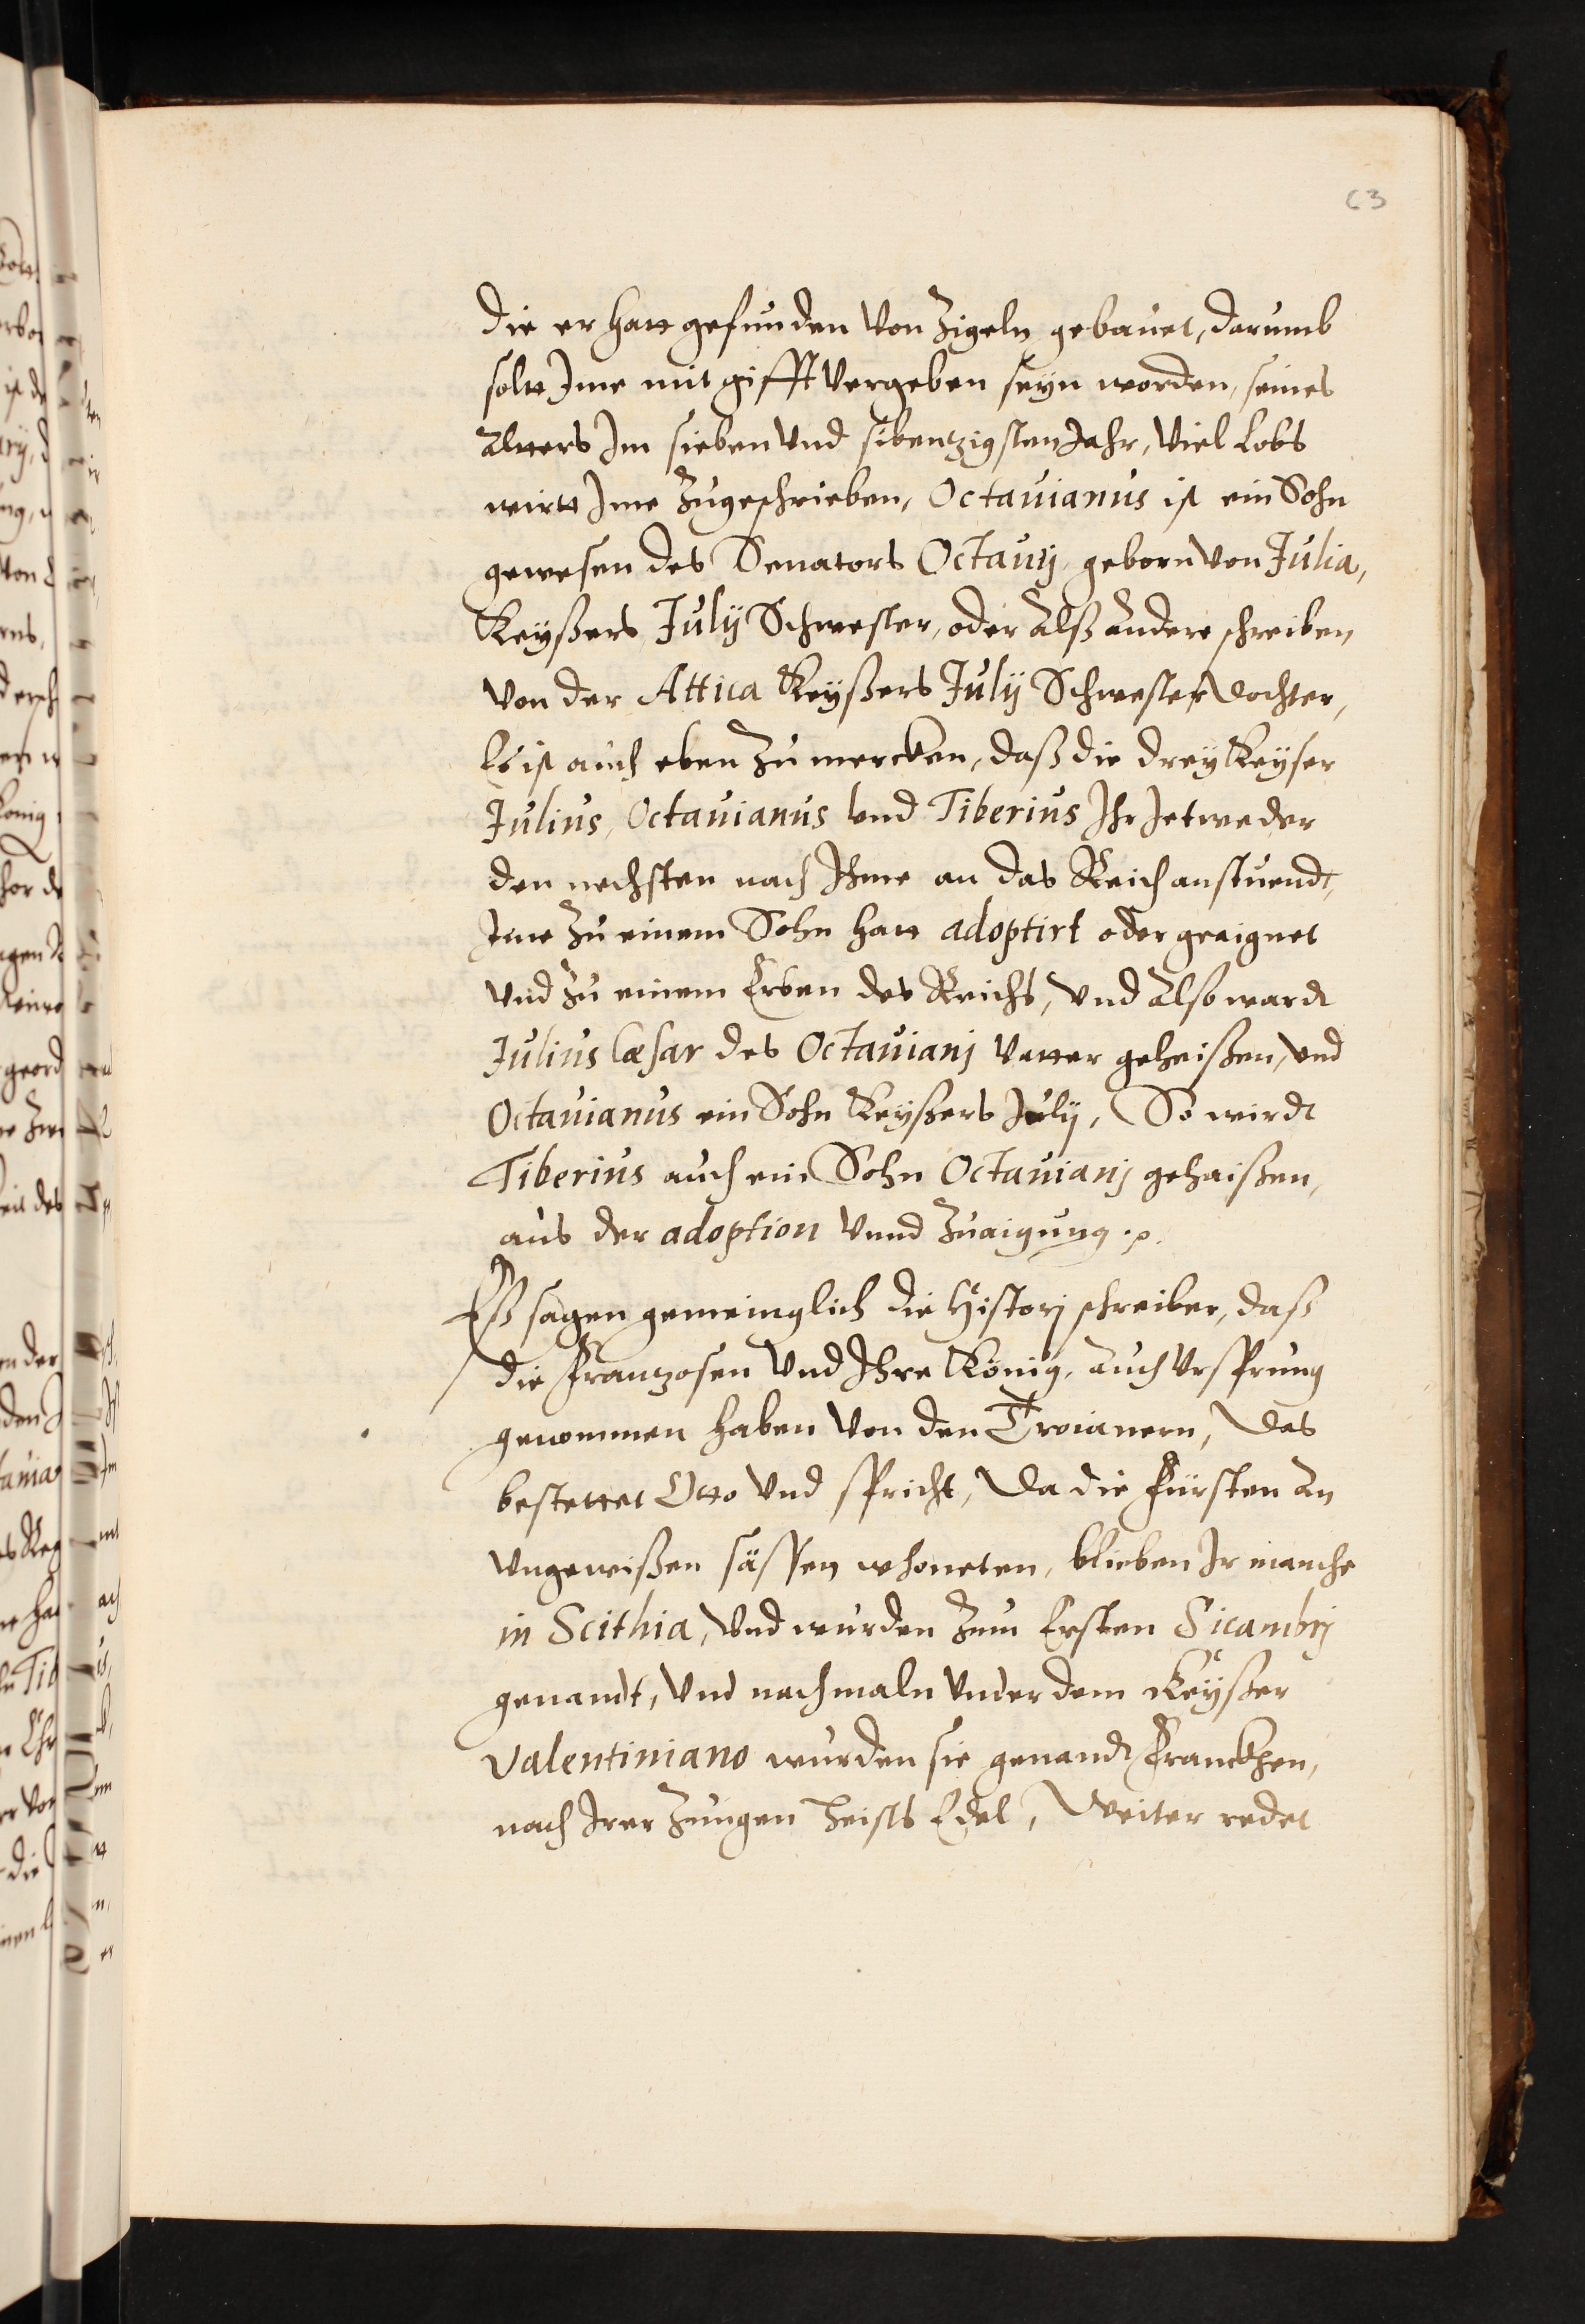 63
die er hatt gefunden von Zigeln gebauet, darumb
solte Jme mit gifft vergeben seyn worden, seines
Alters Jm sieben vnd sibentzigsten Jahr, Viel Lobs
wirtt Jme zugeschrieben, Octauianus ist ein Sohn
gewesen des Senators Octauij geborn von Julia,
Keyßers Julij Schwester, oder Alß Andere schreiben
von der Attica Keyßers Julij Schwester Dochter,
Es ist auch eben zu mercken, daß die drey Keyser
Julius, Octauianus vnd Tiberius Ihr Jetweder
den nechsten nach Ihme an das Reich anstuendt,
Jme zu einem Sohn hatt adoptirt oder geaignet
vnd zu einem Erben des Reichs, vnd Also wardt
Julius Cæsar des Octauianj Vatter geheißen, vnd
Octauianus ein Sohn Keyßers Julij, So wirdt
Tiberius auch ein Sohn Octauianj gehaißen,
aus der adoption vnnd Zuaigung .p.
Eß sagen gemeinglich die Historj schreiber, daß
die Frantzosen vnd Ihre König, auch vrsprung
genommen haben von den Troianern, Das
bestettet Otto vnd spricht, Da die Fürsten An
vngewißen sässen whoneten, blieben Jr manche
in Scithia, vnd wurden zum Ersten Sicambrj
genandt, vnd nachmaln vnder dem Keyßer
Valentiniano wurden sie genandt Franckhen,
nach Jrer Zungen heists Edel, Weiter redet